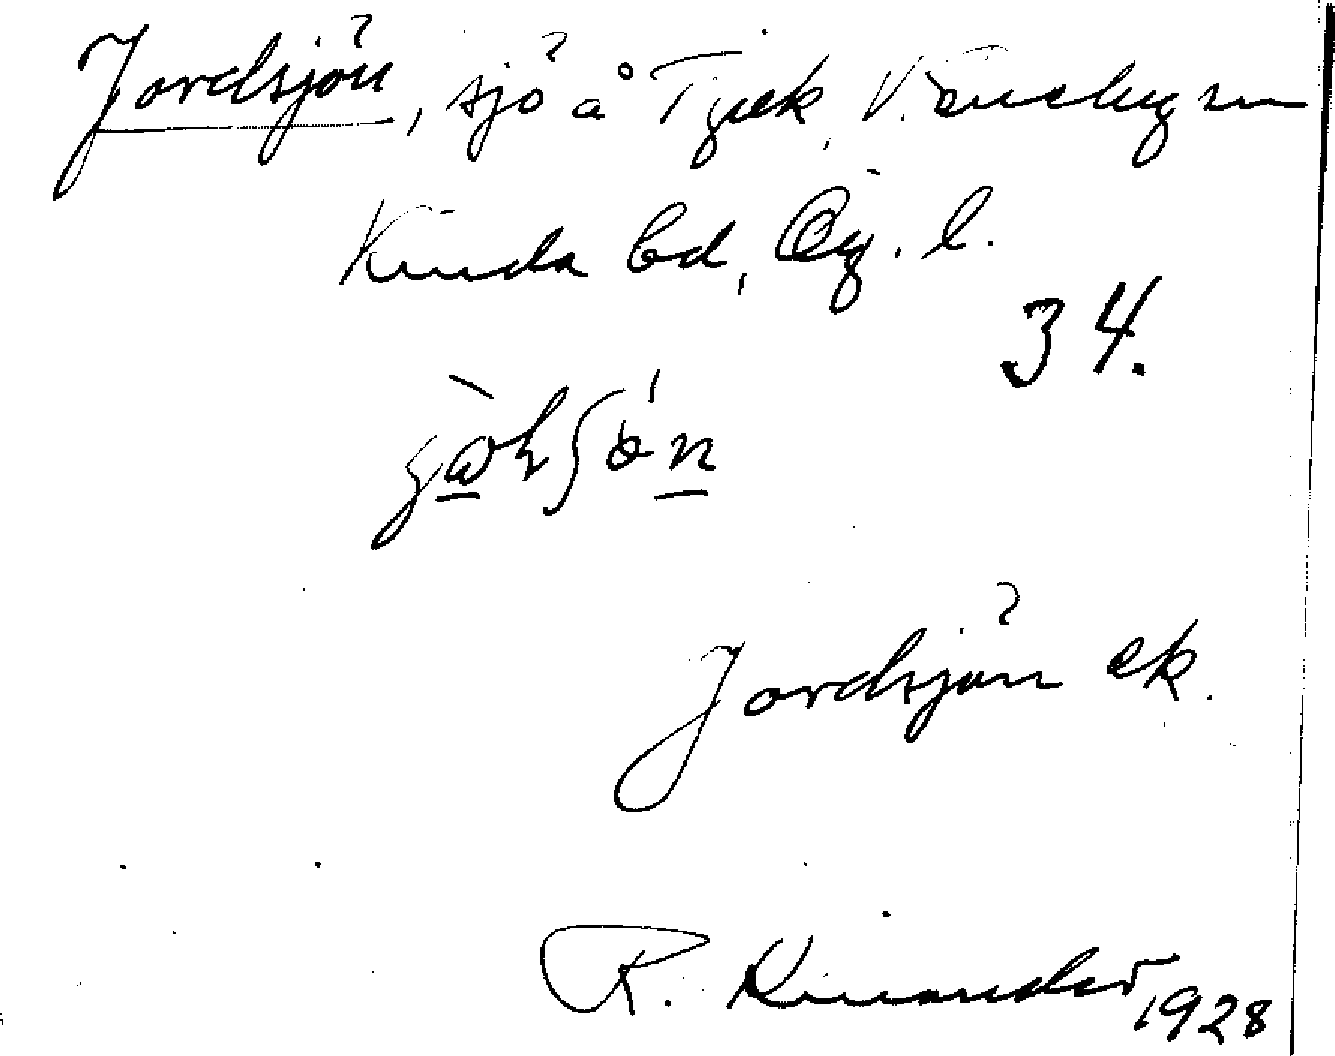 Jordsjön, sjö å Tjäek, V. Eneby sn
Kinda hd, Ög. l.
34.
Jordsjön ek.
R. Kinander 1928